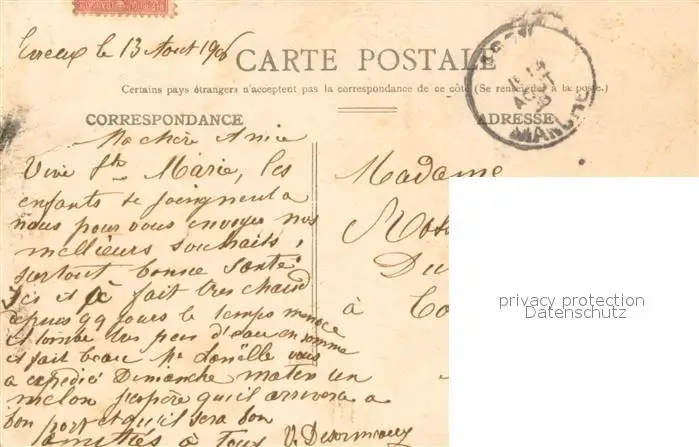 Evreux le 13 Aout 1906
CARTE POSTALE
Certains pays étrangers n'acceptent pas la correspondance de ce côté (Se renseigner à la poste.)
CORRESPONDANCE
ADRESSE
AOUT
MANCHE
Ma chère Amie
Vive Ste Marie, les
enfants se joignent à
nous pour vous envoyer nos
meilleurs souhaits,
surtout bonne santé.
Ici il à fait très chaud
depuis qq jours le temps menace
il tombe très peu d'eau en somme
il fait beau Mr vous
a expédié Dimanche matin un
melon j'espère qu'il arrivera a
bon port et qu'il sera bon
amitiés à Tous
Madame
Du
à Co
privacy protection
Datenschutz